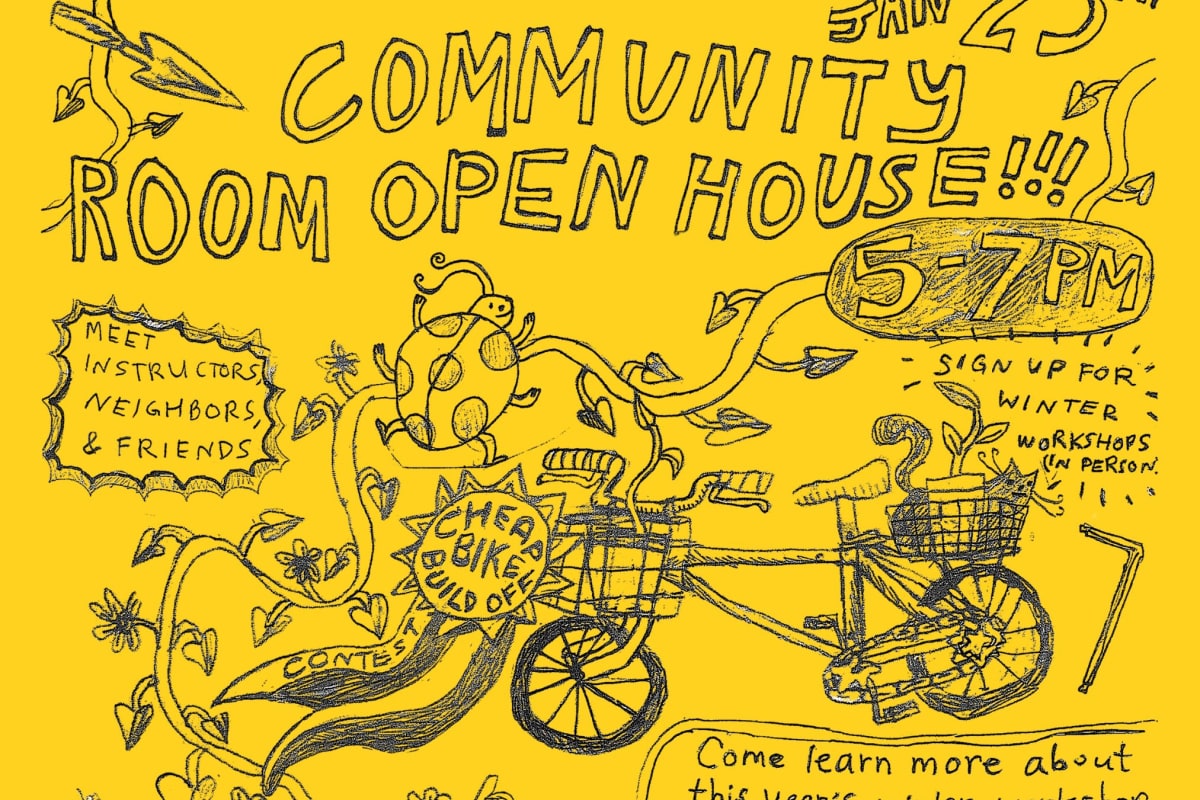 JAN 25TH
COMMUNITY
ROOM OPEN HOUSE!!!
5-7PM
MEET
INSTRUCTORS,
NEIGHBORS,
& FRIENDS
SIGN UP FOR
WINTER
WORKSHOPS
(IN PERSON)
CHEAP
BIKE
BUILD OFF
CONTEST
Come learn more about
this year's winter workshop